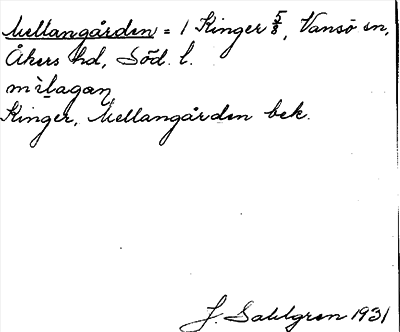 Mellangården = 1 Kinger 5/8, Vansö sn,
Åkers hd, Söd. l.
mìlagan
Kinger, Mellangården bek.
J. Sahlgren 1931